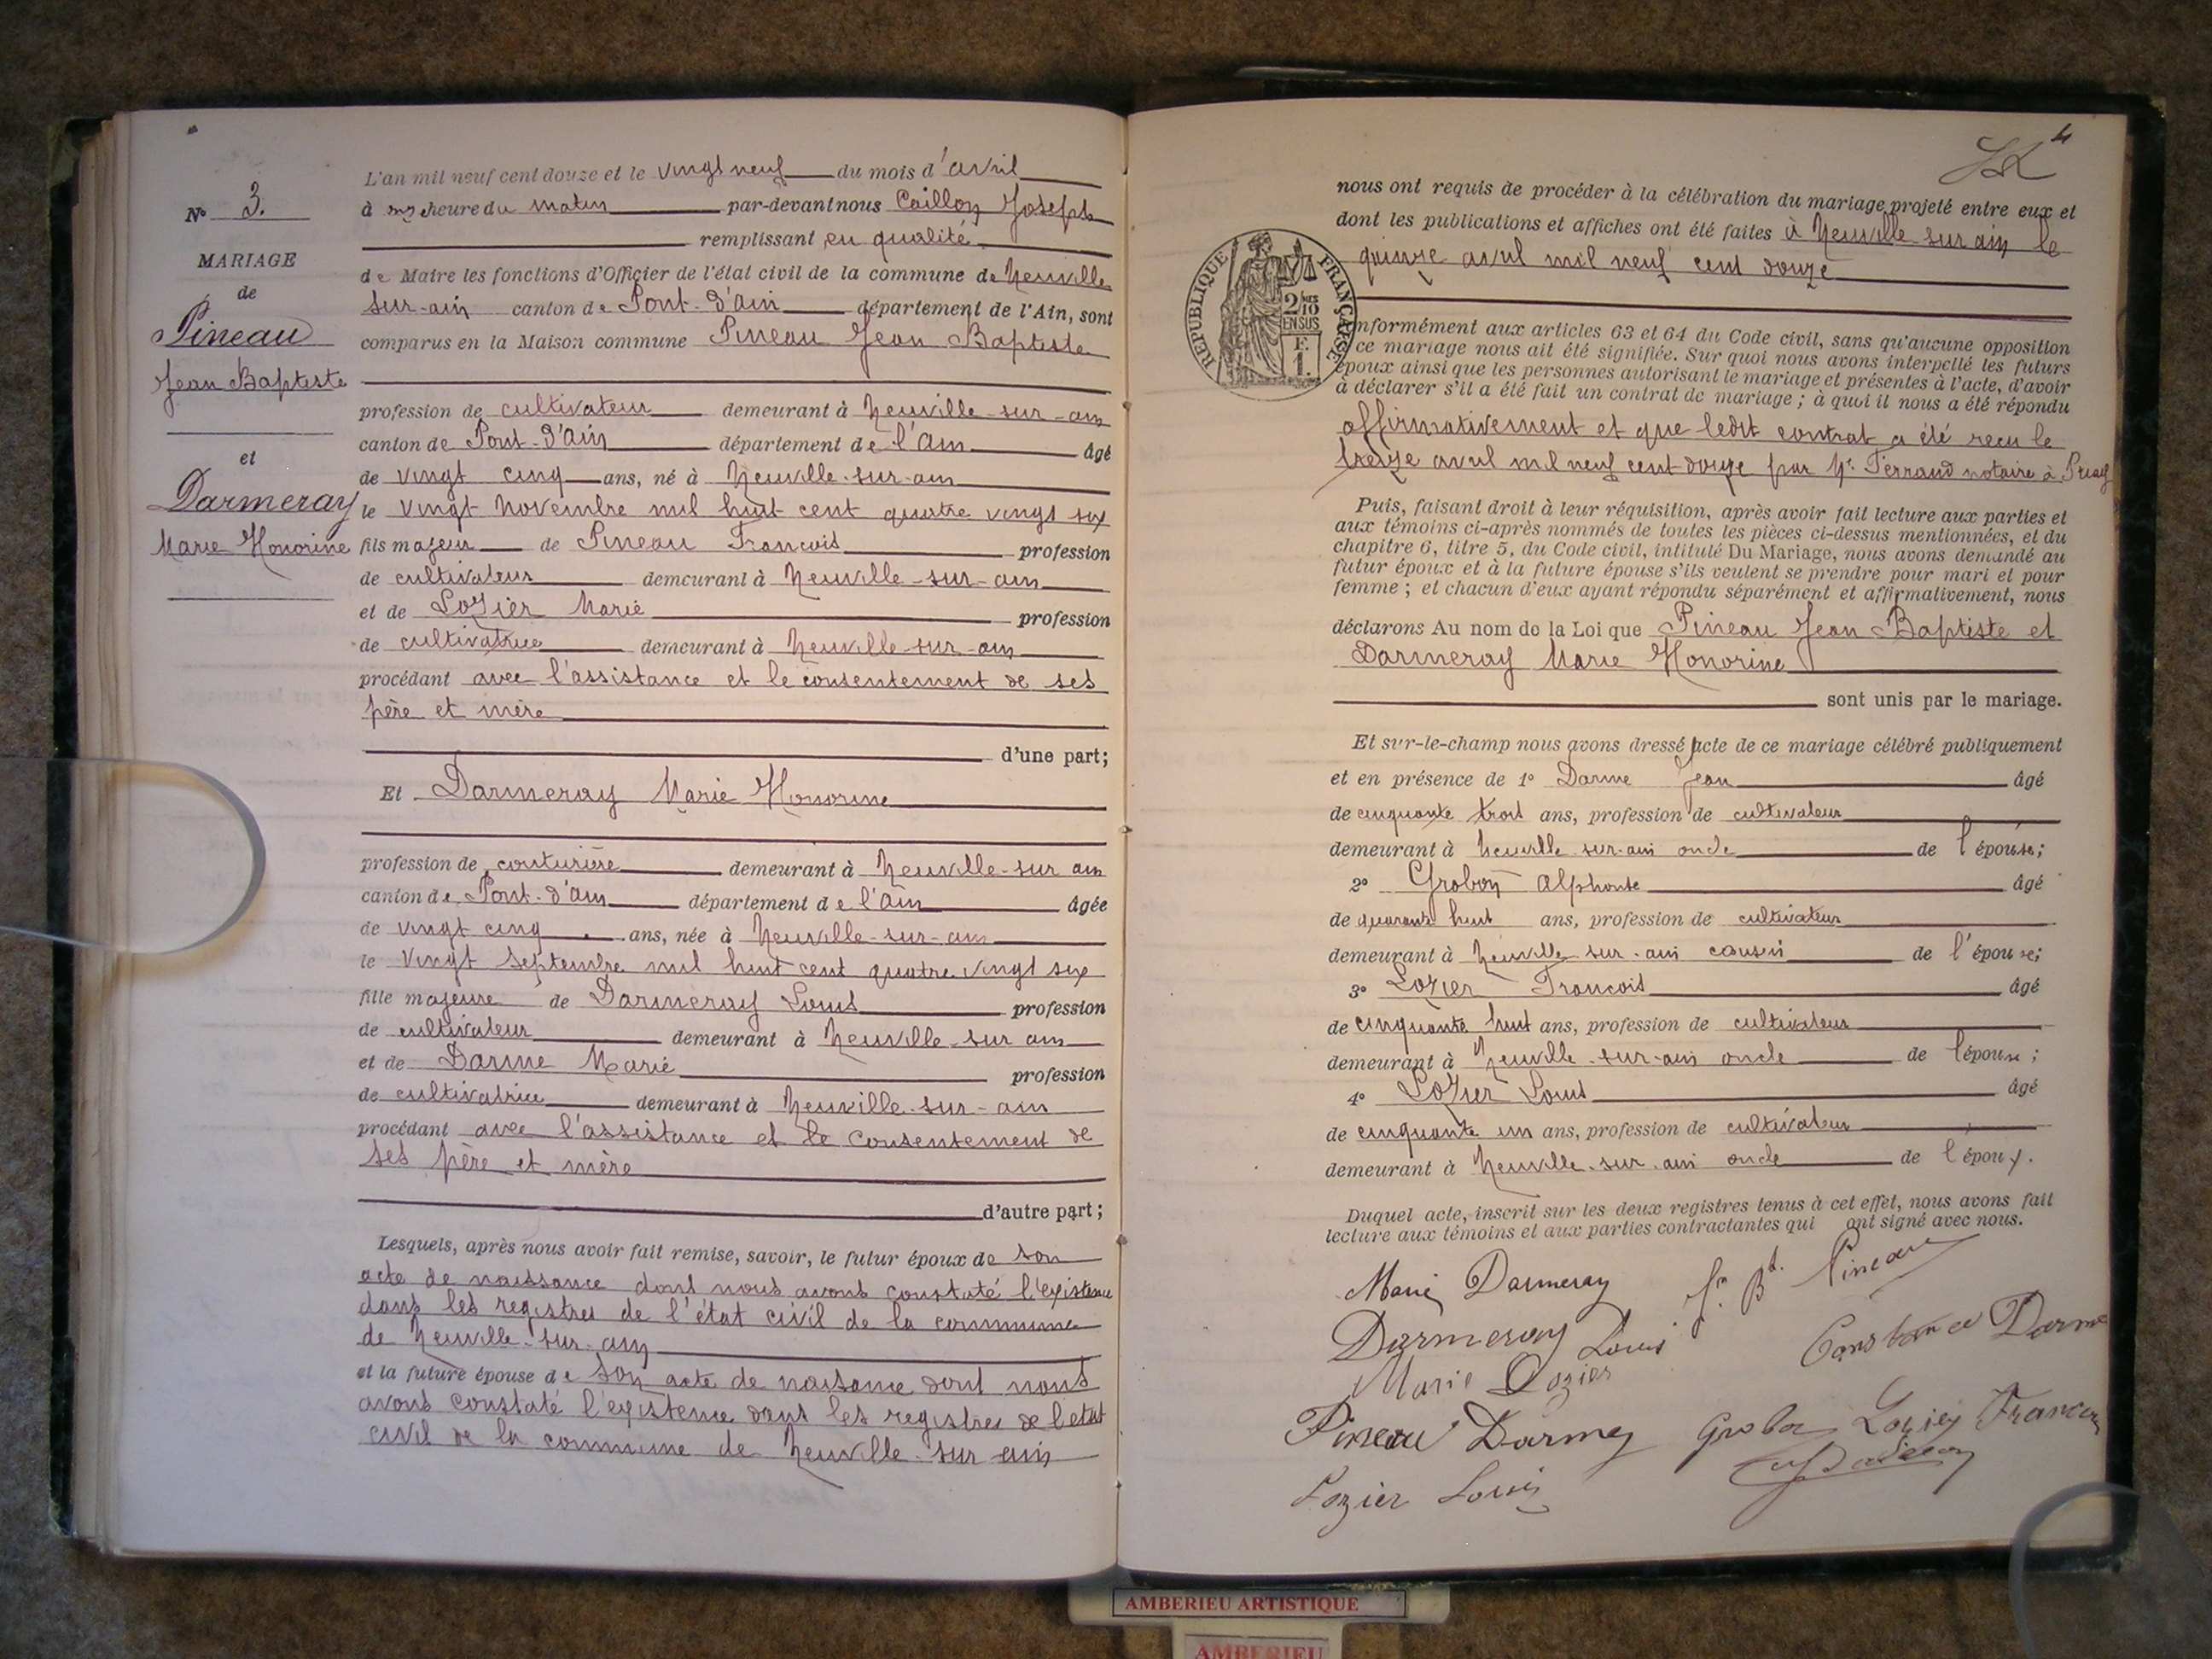 L'an mil neuf cent douze et le vingt neuf du mois d'avril
à onze heure du matin par-devant nous Caillon Joseph
N° 3. remplissant en qualité
MARIAGE
de Maire les fonctions d'Officier de l'état civil de la commune de Neuville
de
sur-ain canton de Pont-d'ain département de l'Ain, sont
Pineau
comparus en la Maison commune Pineau Jean Baptiste
Jean Baptiste
profession de cultivateur demeurant à Neuville-sur-ain
canton de Pont-d'ain département de l'ain âgé
et
de vingt cinq ans, né à Neuville-sur-ain
Darmeray
le vingt Novembre mil huit cent quatre vingt six
Marie Honorine
fils majeur de Pineau Francois profession
de cultivateur demeurant à Neuville-sur-ain
et de Lozier Marie profession
de cultivatrice demeurant à Neuville-sur-ain
procédant avec l'assistance et le consentement de ses
père et mère
d'une part;
Et Darmeray Marie Honorine
profession de couturière demeurant à Neuville-sur ain
canton de Pont-d'ain département de l'ain âgée
de vingt cinq ans, née à Neuville-sur-ain
le vingt septembre mil huit cent quatre vingt six
fille majeure de Darmeray Louis profession
de cultivateur demeurant à Neuville-sur ain
et de Darme Marie profession
de cultivatrice demeurant à Neuville-sur-ain
procédant avec l'assistance et le consentement de
ses père et mère
d'autre part;
Lesquels, après nous avoir fait remise, savoir, le futur époux de son
acte de naissance dont nous avons constaté l'existence
dans les registres de l'état civil de la commune
de Neuville-sur-ain
et la future épouse de son acte de naissance dont nous
avons constaté l'existence dans les registres de l'etat
civil de la commune de Neuville-sur ain
4
nous ont requis de procéder à la célébration du mariage projeté entre eux et
dont les publications et affiches ont été faites à Neuville-sur ain le
quinze avril mil neuf cent douze
REPUBLIQUE FRANÇAISE
2/10
EN SUS
F.
1.
nformément aux articles 63 et 64 du Code civil, sans qu'aucune opposition
ce mariage nous ait été signifiée. Sur quoi nous avons interpellé les futurs
époux ainsi que les personnes autorisant le mariage et présentes à l'acte, d'avoir
à déclarer s'il a été fait un contrat de mariage; à quoi il nous a été répondu
affirmativement et que ledit contrat a été recu le
treize avril mil neuf cent douze par Mr Ferrand notaire à
Puis, faisant droit à leur réquisition, après avoir fait lecture aux parties et
aux témoins ci-après nommés de toutes les pièces ci-dessus mentionnées, et du
chapitre 6, titre 5, du Code civil, intitulé Du Mariage, nous avons demandé au
futur époux et à la future épouse s'ils veulent se prendre pour mari et pour
femme; et chacun d'eux ayant répondu séparément et affirmativement, nous
déclarons Au nom de la Loi que Pineau Jean Baptiste et
Darmeray Marie Honorine
sont unis par le mariage.
Et sur-le-champ nous avons dressé acte de ce mariage célébré publiquement
et en présence de 1° Darme Jean âgé
de cinquante trois ans, profession de cultivateur
demeurant à Neuville-sur-ain oncle de l'épouse;
2° Grobon Alphonse âgé
de quarante huit ans, profession de cultivateur
demeurant à Neuville-sur-ain cousin de l'épouse;
3° Lozier Francois âgé
de cinquante huit ans, profession de cultivateur
demeurant à Neuville-sur-ain oncle de l'épouse;
4° Lozier Louis âgé
de cinquante un ans, profession de cultivateur
demeurant à Neuville-sur-ain oncle de l'époux.
Duquel acte, inscrit sur les deux registres tenus à cet effet, nous avons fait
lecture aux témoins et aux parties contractantes qui ont signé avec nous.
Marie Darmeray Jn Bt. Pineau
Darmeray Louis Constance Darme
Marie Lozier
Pineau Darme Grobon Lozier Francois
Lozier Louis
AMBERIEU ARTISTIQUE
AMBERIEU